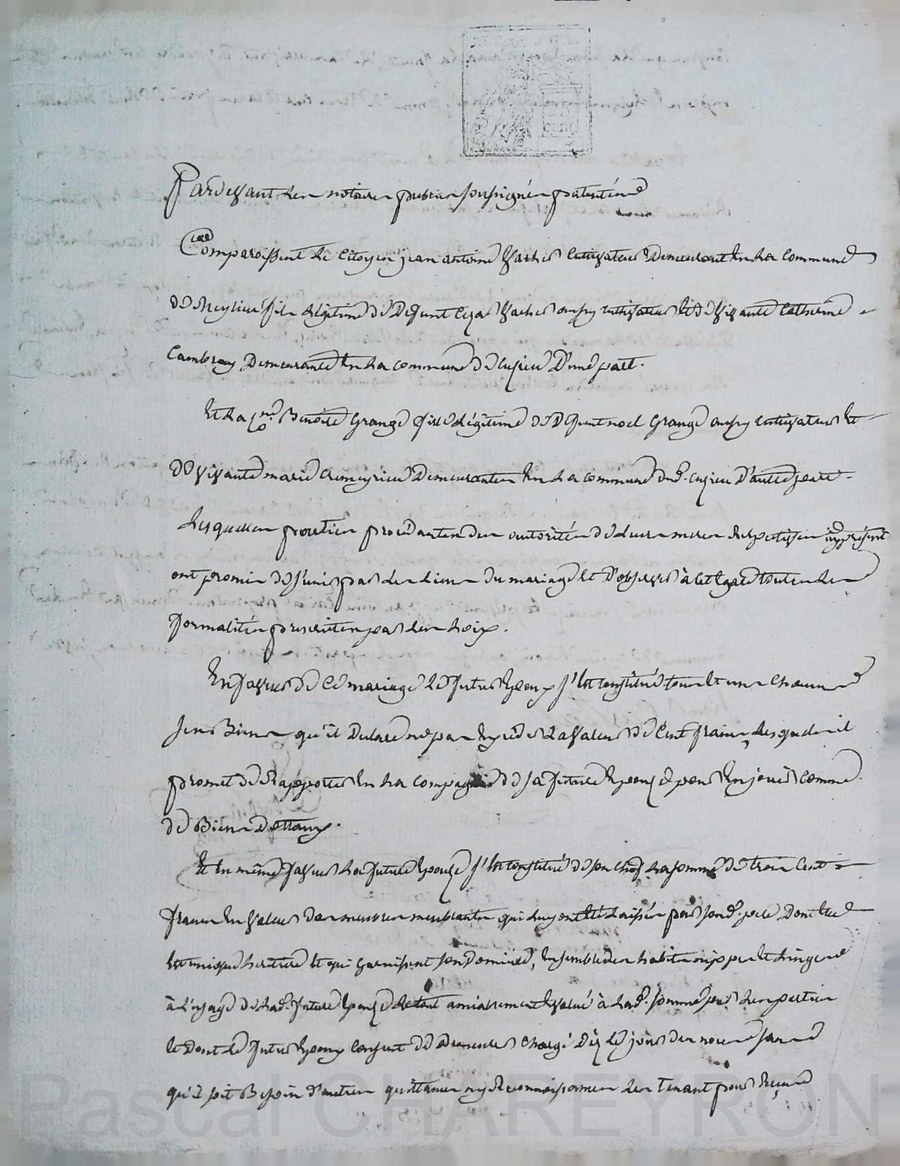 Pardevant les notaires publics soussignés patentés
Comparoissent le Citoyen jean antoine Vacher Cultivateur Demeurant En la commune
de fils légitime de Défunt Vacher aussy cultivateur Et de vivante Catherine
Demeurante En la commune de Cuzieu D'une part.
Et la Cne Benoite Grange fille légitime de Défunt noel Grange aussy cultivateur Et
de vivante marie Demeurantes En la commune dud. Cuzieu D'autre part.
Lesquelles parties procédantes des autorités de leurs meres Respectives icy présentes
ont promis de s'unir par les liens du mariage Et D'observer à cet Egard toutes les
formalités prescrittes par les Loix.
En faveur de Ce mariage Le futur Epoux s'Est constitué tous Et uns Chacuns
ses Biens qu'il Déclare ne pas Excéder La valeur de Cent francs, Lesquels il
promet de Rapporter En la compagnie de sa future Epouse pour En jouir comme
de Biens Dottaux.
Et En même faveur La future Epouse s'Est constitué de son Chef La somme de trois Cent
francs En valeur des meubles meublants qui luy ont été Laissés par sond. pere Dont Elle
Est unique héritiere Et qui garnissent son Domicile, Ensemble des habits nipes Et Linges
à L'usage de Lad. future Epouse Le tout amiablement Evalué à Lad. somme par Les parties
Et Dont Le futur Epoux Consent De Demeurer Chargé Dez Le jour des noces sans
qu'il soit Besoin D'autres quittances ny Reconnoissances Les Tenant pour Reçus
Pascal CHAREYRON